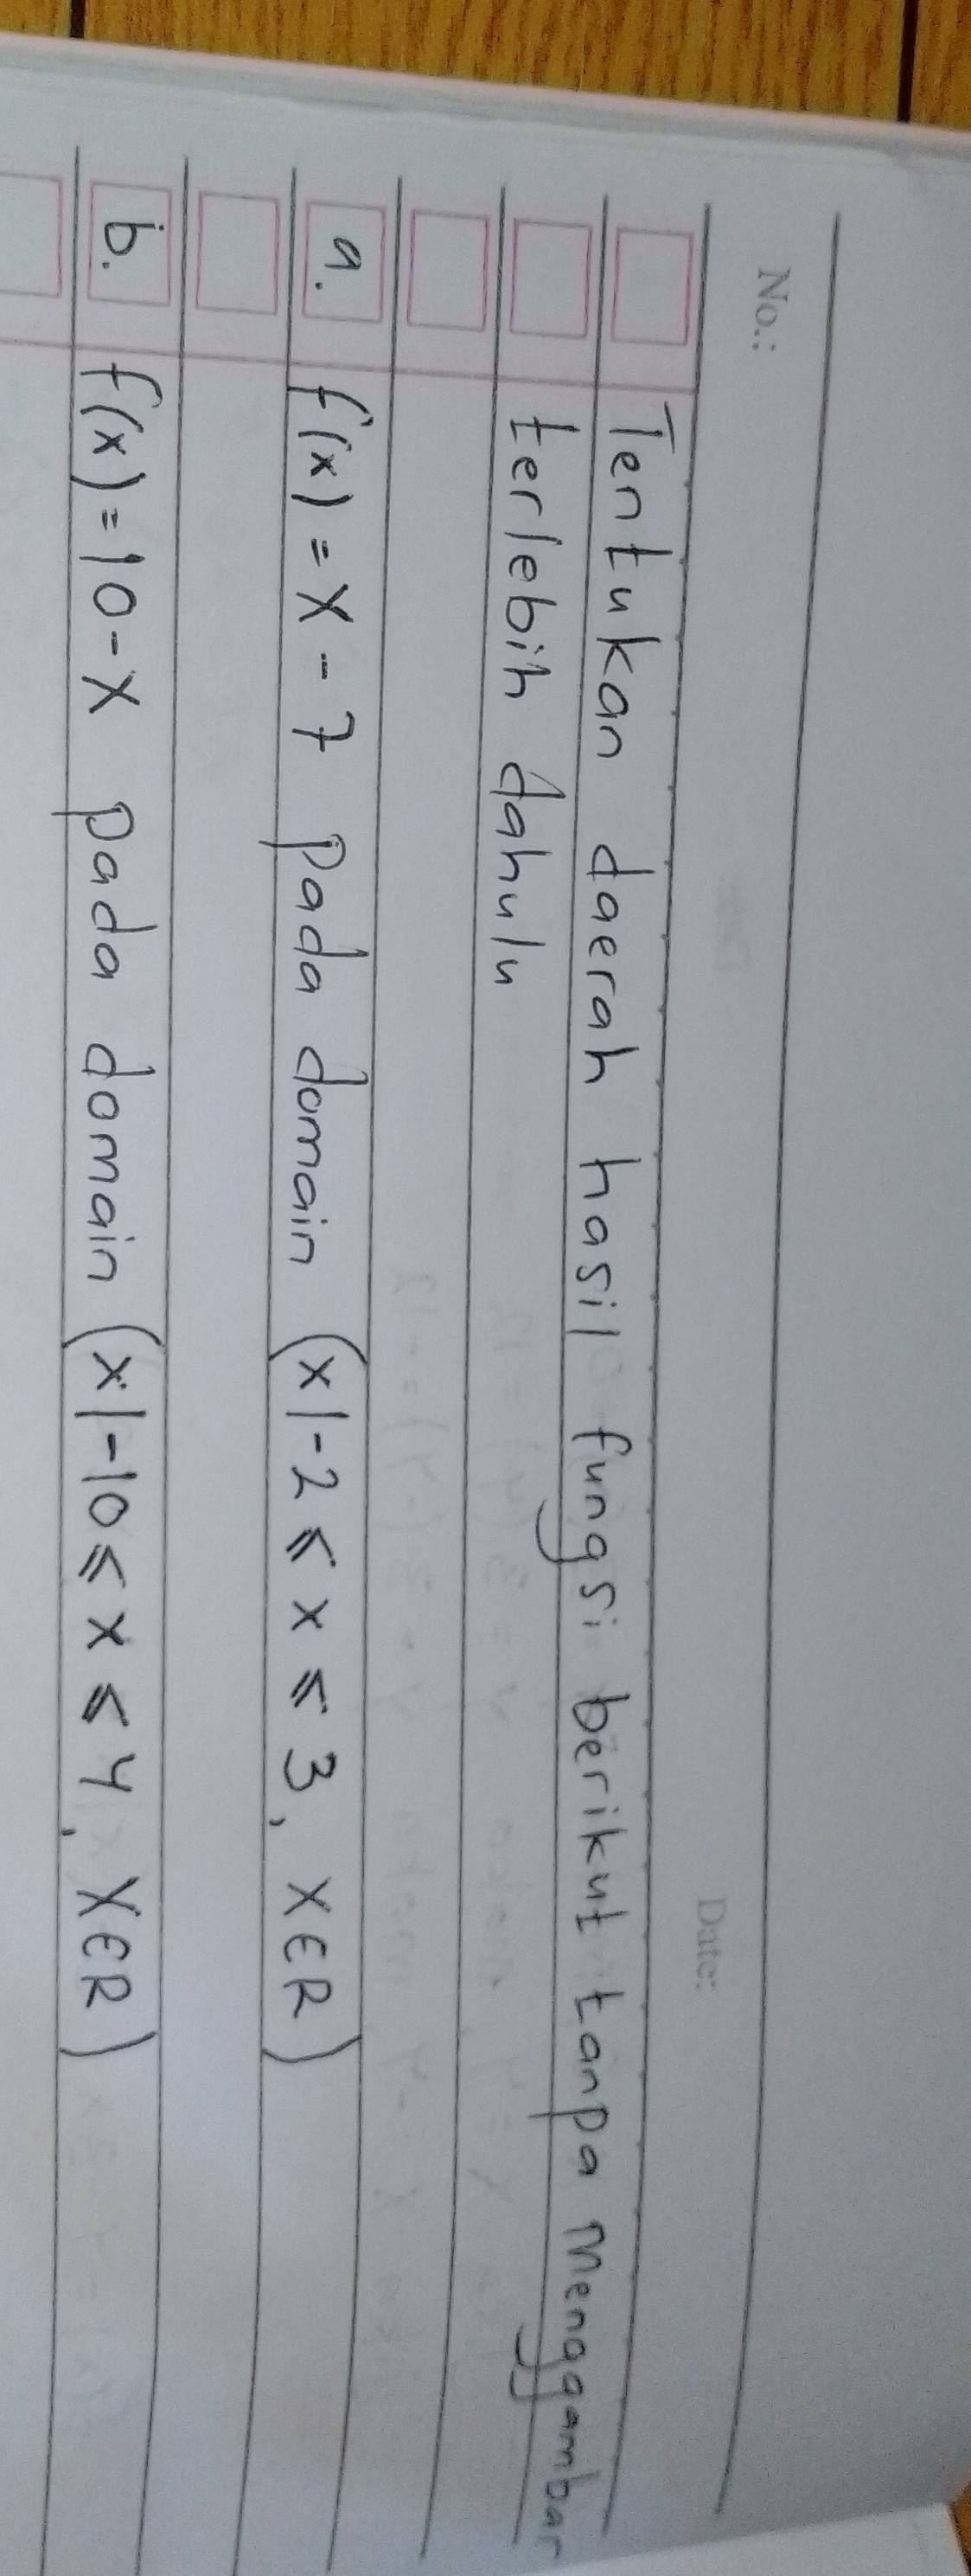 No.:
Date:
Tentukan daerah hasil fungsi berikut tanpa menggambar
terlebih dahulu
a. f(x) = x - 7 pada domain (x|-2 ⩽ x ⩽ 3, x∈R)
b. f(x) = 10 - x pada domain (x|-10 ⩽ x ⩽ 4, x∈R)